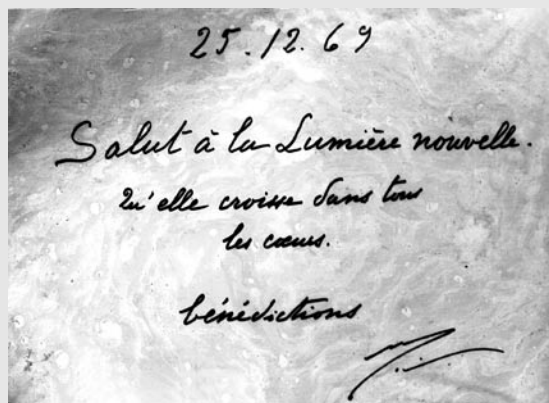 25.12.69
Salut à la Lumière nouvelle.
Qu'elle croisse dans tous
les cœurs.
bénédictions